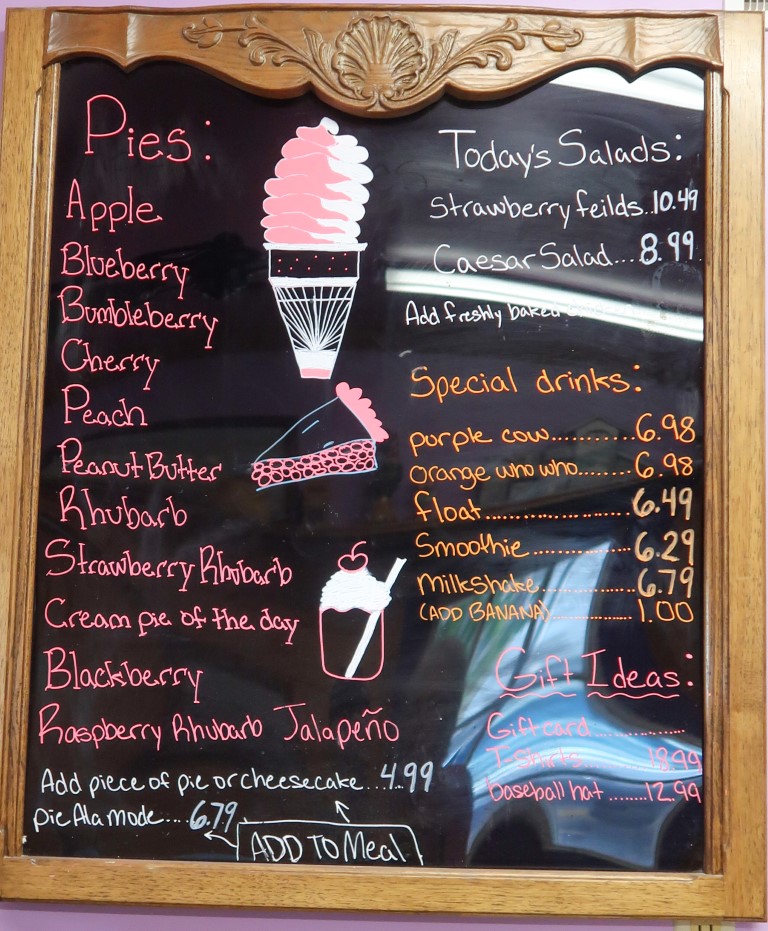 Pies:
Apple
Blueberry
Bumbleberry
Cherry
Peach
Peanut Butter
Rhubarb
Strawberry Rhubarb
Cream pie of the day
Blackberry
Raspberry Rhubarb Jalapeño
Add piece of pie or cheesecake...4.99
pie Ala mode....6.79
ADD TO Meal
Today's Salads:
Strawberry feilds..10.49
Caesar Salad....8.99
Add freshly baked
Special drinks:
purple cow...........6.98
orange who who.......6.98
float....................6.49
Smoothie..............6.29
Milkshake.............6.79
(ADD BANANA)...........1.00
Gift Ideas:
Gift card.............
T-Shirts........18.99
baseball hat.......12.99